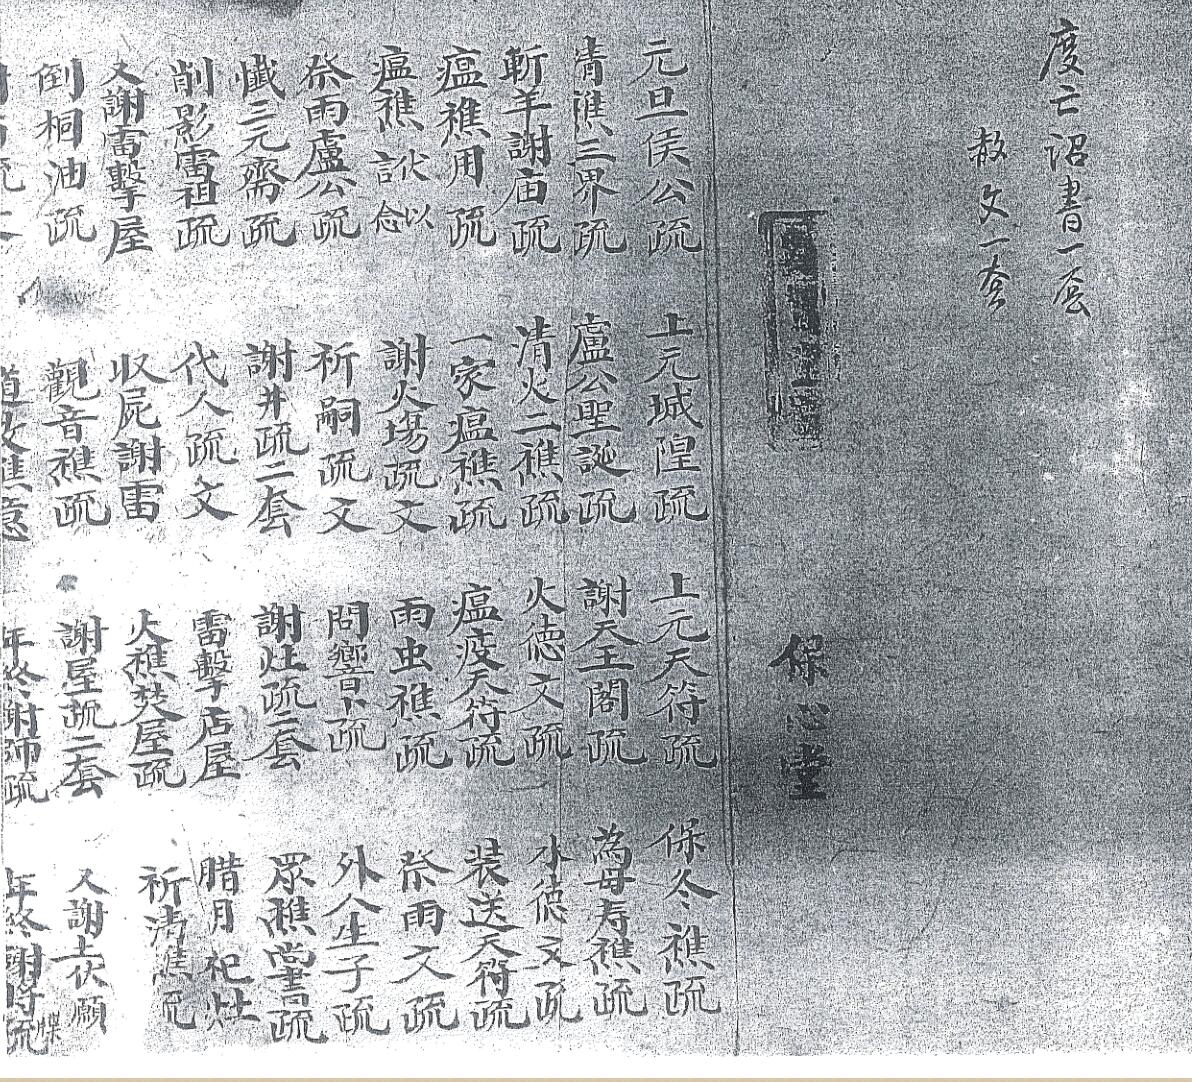 度亡詔書一套
赦文一套
保心堂
元旦侯公疏 上元城隍疏 上元天符疏 保冬醮疏
清醮三界疏 盧公聖誕疏 謝天王閣疏 為母寿醮疏
斬羊謝庙疏 清火二醮疏 火德文疏 水德文疏
瘟醮用疏 一家瘟醮疏 瘟疫天符疏 装送天符疏
瘟醮 伏以 念 謝火塲疏文 雨虫醮疏 祭雨文疏
祭雨盧公疏 祈嗣疏文 問響卜疏 外人生子疏
懺三元齋疏 謝井疏二套 謝灶疏二套 眾醮尚書疏
削影雷祖疏 代人疏文 雷擊店屋 腊月祀灶
又謝雷擊屋 收屍謝雷 火醮焚屋疏 祈清醮疏
倒桐油疏 觀音醮疏 謝屋疏二套 又謝土伏願
醮意 年終謝師疏 年終謝将疏